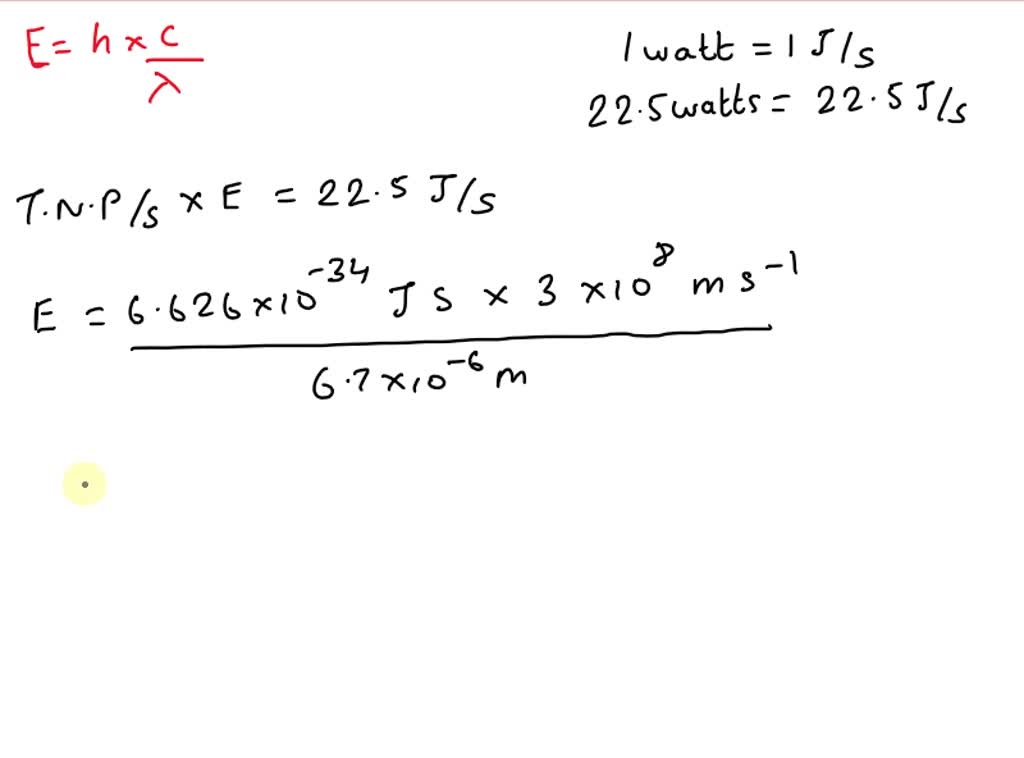 E = h × c / λ
1 watt = 1 J/s
22.5 watts = 22.5 J/s
T.N.P/s × E = 22.5 J/s
E = 6.626 × 10⁻³⁴ J s × 3 × 10⁸ m s⁻¹
6.7 × 10⁻⁶ m